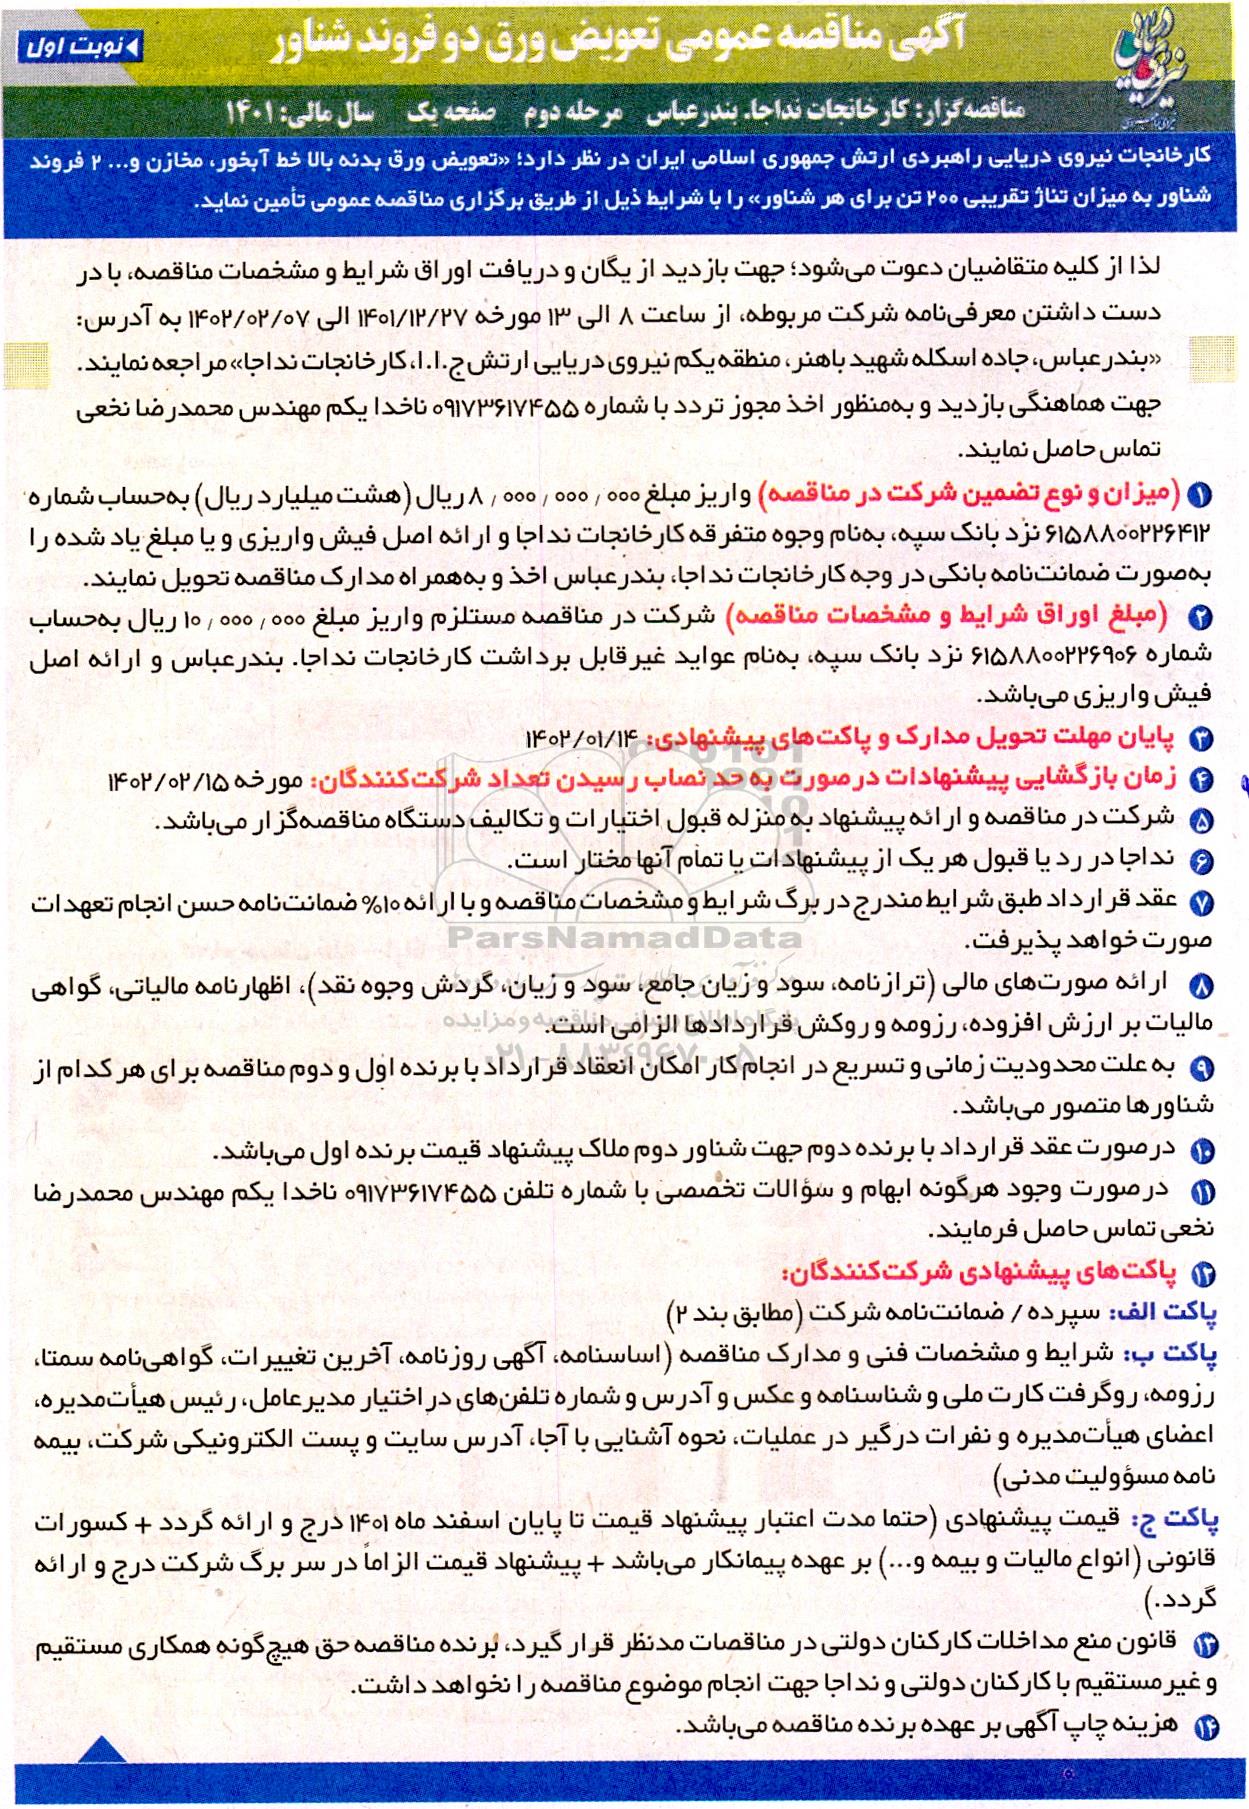 آگهی مناقصه عمومی تعویض ورق دو فروند شناور
نوبت اول
مناقصه‌گزار: کارخانجات نداجا. بندرعباس مرحله دوم صفحه یک سال مالی: ۱۴۰۱
کارخانجات نیروی دریایی راهبردی ارتش جمهوری اسلامی ایران در نظر دارد؛ «تعویض ورق بدنه بالا خط آبخور، مخازن و... ۲ فروند
شناور به میزان تناژ تقریبی ۲۰۰ تن برای هر شناور» را با شرایط ذیل از طریق برگزاری مناقصه عمومی تأمین نماید.
لذا از کلیه متقاضیان دعوت می‌شود؛ جهت بازدید از یگان و دریافت اوراق شرایط و مشخصات مناقصه، با در
دست داشتن معرفی‌نامه شرکت مربوطه، از ساعت ۸ الی ۱۳ مورخه ۱۴۰۱/۱۲/۲۷ الی ۱۴۰۲/۰۲/۰۷ به آدرس:
«بندرعباس، جاده اسکله شهید باهنر، منطقه یکم نیروی دریایی ارتش ج.ا.ا، کارخانجات نداجا» مراجعه نمایند.
جهت هماهنگی بازدید و به‌منظور اخذ مجوز تردد با شماره ۰۹۱۷۳۶۱۷۴۵۵ ناخدا یکم مهندس محمدرضا نخعی
تماس حاصل نمایند.
۱ (میزان و نوع تضمین شرکت در مناقصه) واریز مبلغ ۸/۰۰۰/۰۰۰/۰۰۰ ریال (هشت میلیارد ریال) به‌حساب شماره
۶۱۵۸۸۰۰۲۲۶۴۱۲ نزد بانک سپه، به‌نام وجوه متفرقه کارخانجات نداجا و ارائه اصل فیش واریزی و یا مبلغ یاد شده را
به‌صورت ضمانت‌نامه بانکی در وجه کارخانجات نداجا، بندرعباس اخذ و به‌همراه مدارک مناقصه تحویل نمایند.
۲ (مبلغ اوراق شرایط و مشخصات مناقصه) شرکت در مناقصه مستلزم واریز مبلغ ۱۰/۰۰۰/۰۰۰ ریال به‌حساب
شماره ۶۱۵۸۸۰۰۲۲۶۹۰۶ نزد بانک سپه، به‌نام عواید غیرقابل برداشت کارخانجات نداجا. بندرعباس و ارائه اصل
فیش واریزی می‌باشد.
۳ پایان مهلت تحویل مدارک و پاکت‌های پیشنهادی: ۱۴۰۲/۰۱/۱۴
۴ زمان بازگشایی پیشنهادات درصورت به حد نصاب رسیدن تعداد شرکت‌کنندگان: مورخه ۱۴۰۲/۰۲/۱۵
۵ شرکت در مناقصه و ارائه پیشنهاد به منزله قبول اختیارات و تکالیف دستگاه مناقصه‌گزار می‌باشد.
۶ نداجا در رد یا قبول هر یک از پیشنهادات یا تمام آنها مختار است.
۷ عقد قرارداد طبق شرایط مندرج در برگ شرایط و مشخصات مناقصه و با ارائه ۱۰% ضمانت‌نامه حسن انجام تعهدات
صورت خواهد پذیرفت.
ParsNamadData
۸ ارائه صورت‌های مالی (ترازنامه، سود و زیان جامع، سود و زیان، گردش وجوه نقد)، اظهارنامه مالیاتی، گواهی
مالیات بر ارزش افزوده، رزومه و روکش قراردادها الزامی است.
پایگاه اطلاع رسانی مناقصه و مزایده
۰۲۱-۸۸۳۴۹۶۷۰-۵
۹ به علت محدودیت زمانی و تسریع در انجام کار امکان انعقاد قرارداد با برنده اول و دوم مناقصه برای هر کدام از
شناورها متصور می‌باشد.
۱۰ درصورت عقد قرارداد با برنده دوم جهت شناور دوم ملاک پیشنهاد قیمت برنده اول می‌باشد.
۱۱ درصورت وجود هرگونه ابهام و سؤالات تخصصی با شماره تلفن ۰۹۱۷۳۶۱۷۴۵۵ ناخدا یکم مهندس محمدرضا
نخعی تماس حاصل فرمایند.
۱۲ پاکت‌های پیشنهادی شرکت‌کنندگان:
پاکت الف: سپرده / ضمانت‌نامه شرکت (مطابق بند ۲)
پاکت ب: شرایط و مشخصات فنی و مدارک مناقصه (اساسنامه، آگهی روزنامه، آخرین تغییرات، گواهی‌نامه سمتا،
رزومه، روگرفت کارت ملی و شناسنامه و عکس و آدرس و شماره تلفن‌های در اختیار مدیرعامل، رئیس هیأت‌مدیره،
اعضای هیأت‌مدیره و نفرات درگیر در عملیات، نحوه آشنایی با آجا، آدرس سایت و پست الکترونیکی شرکت، بیمه
نامه مسؤولیت مدنی)
پاکت ج: قیمت پیشنهادی (حتما مدت اعتبار پیشنهاد قیمت تا پایان اسفند ماه ۱۴۰۱ درج و ارائه گردد + کسورات
قانونی (انواع مالیات و بیمه و...) بر عهده پیمانکار می‌باشد + پیشنهاد قیمت الزاماً در سر برگ شرکت درج و ارائه
گردد.)
۱۳ قانون منع مداخلات کارکنان دولتی در مناقصات مدنظر قرار گیرد، برنده مناقصه حق هیچ‌گونه همکاری مستقیم
و غیرمستقیم با کارکنان دولتی و نداجا جهت انجام موضوع مناقصه را نخواهد داشت.
۱۴ هزینه چاپ آگهی بر عهده برنده مناقصه می‌باشد.